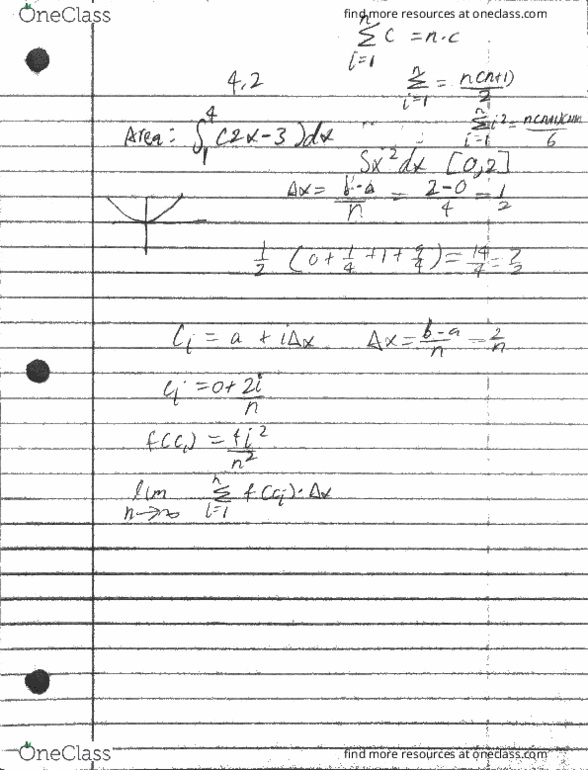 OneClass
find more resources at oneclass.com
n
∑ C = n·c
i=1
4.2
n
∑ = n(n+1)/2
i=1
n
∑ i² = n(n+1)/6
i=1
Area: ∫₁⁴ (2x-3)dx
Sx²dx [0,2]
Δx = b-a/n = 2-0/4 = 1/2
1/2 (0+1/4+1+9/4) = 14/4 =
Ci = a + iΔx Δx = b-a/n = 2/n
Ci = 0+2i/n
f(ci) = 4i²/n²
lim n→∞ n∑i=1 f(ci)·Δx
OneClass
find more resources at oneclass.com